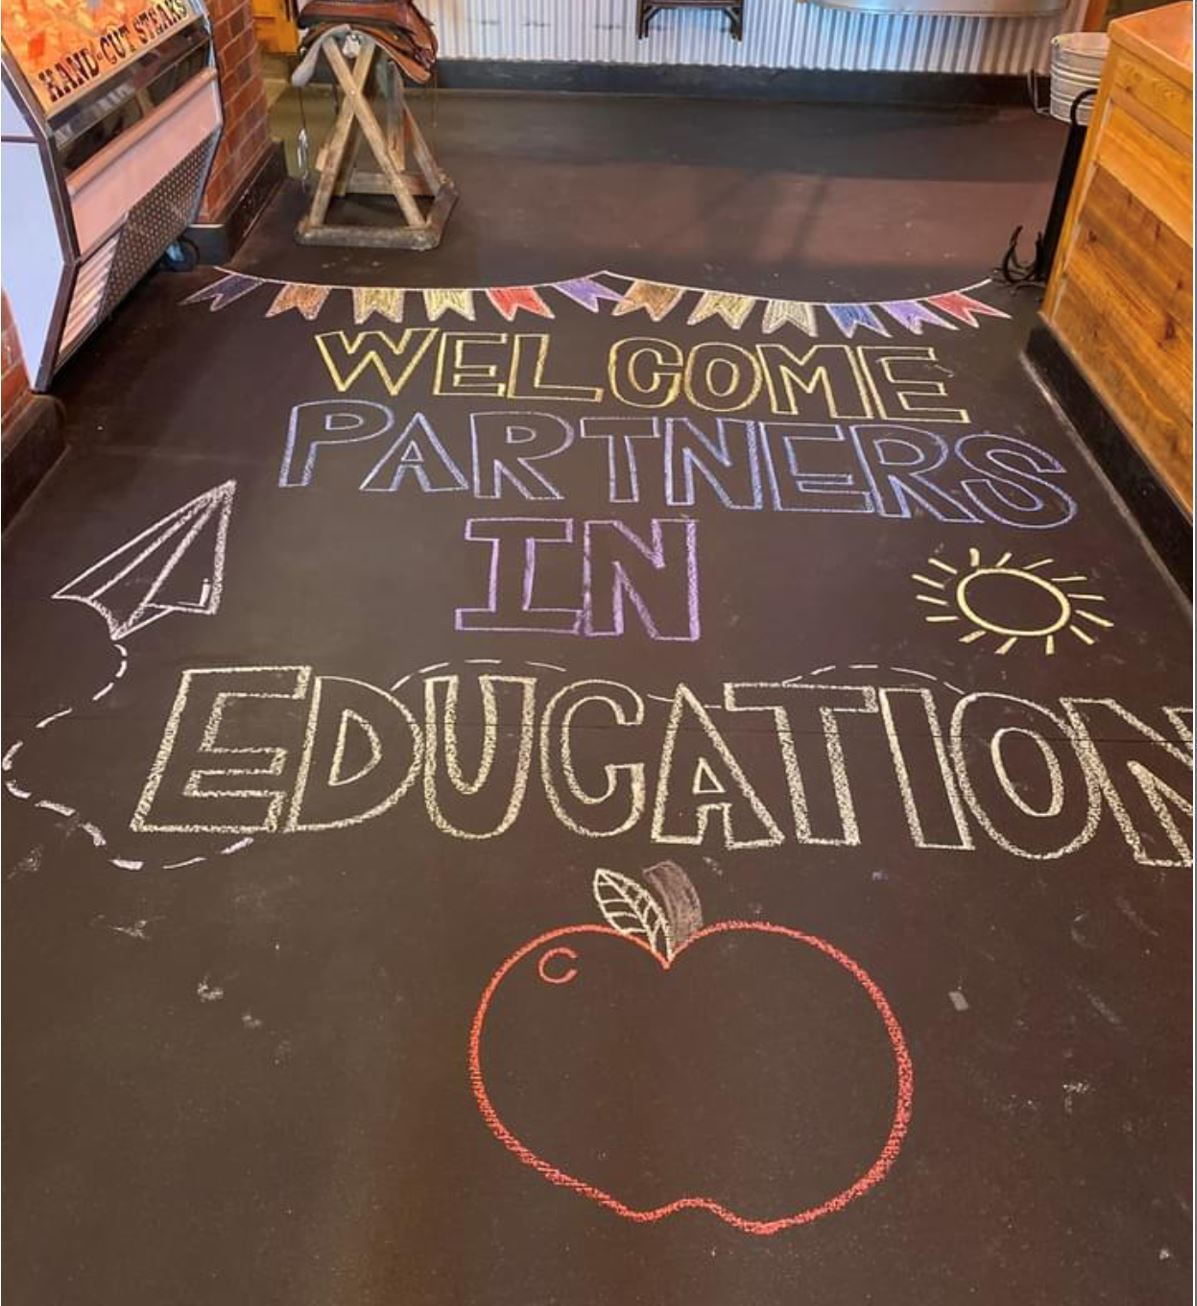 HAND-CUT STEAKS
WELCOME
PARTNERS
IN
EDUCATION